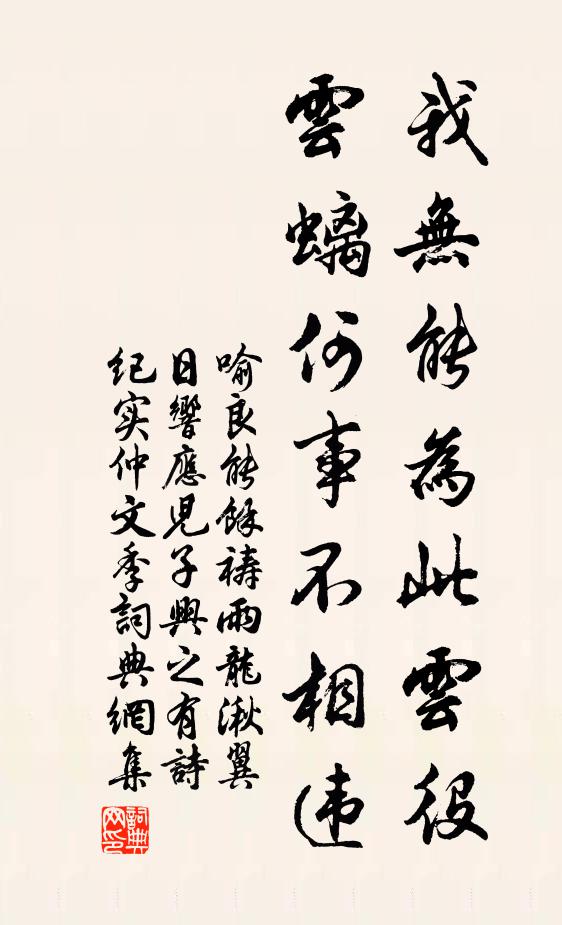 我無能為此雲役
雲螭何事不相违
喻良能餘禱雨龍湫翼
日響應児子興之有詩
纪实仲文季詞典網集
詞典
网印